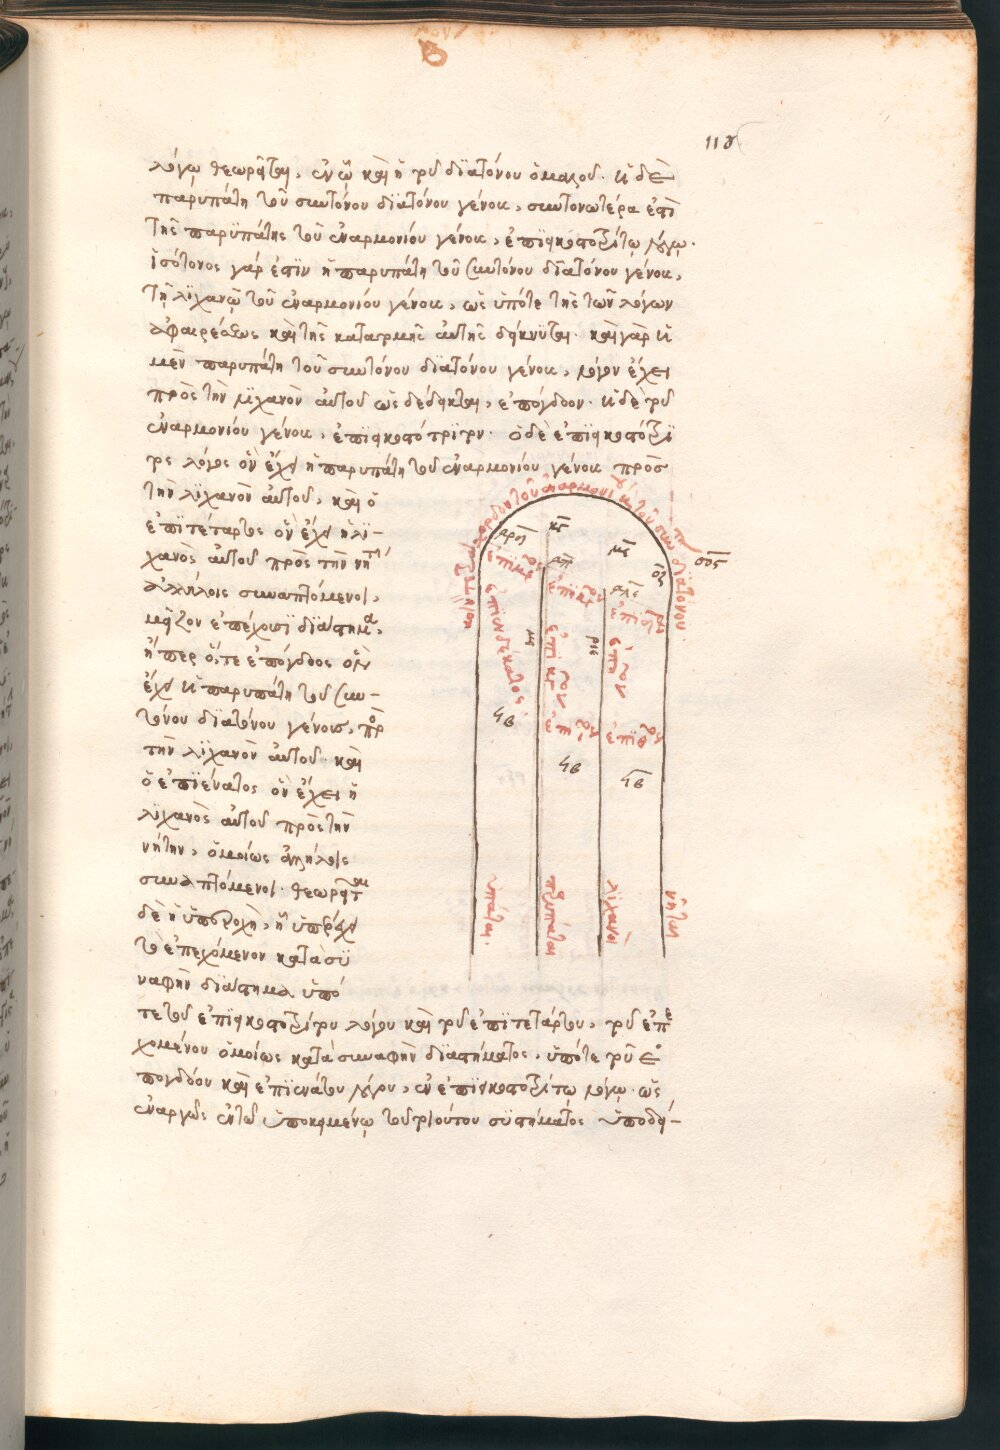 118
λόγῳ θεωρεῖται, ἐν ᾧ καὶ ἡ τοῦ διατόνου ὁμαλοῦ. ἡ δὲ
παρυπάτη τοῦ συντόνου διατόνου γένους, συντονωτέρα ἐστὶ
τῆς παρυπάτης τοῦ ἐναρμονίου γένους,
ἰσότονος γάρ ἐστιν ἡ παρυπάτη τοῦ συντόνου διατόνου γένους,
τῇ λιχανῷ τοῦ ἐναρμονίου γένους, ὡς ὑπό τε τῆς τῶν λόγων
ἀφαιρέσεως καὶ τῆς κατατομῆς αὐτῆς δείκνυται. καὶ γὰρ ἡ
μὲν παρυπάτη τοῦ συντόνου διατόνου γένους, λόγον ἔχει
πρὸς τὴν λιχανὸν αὐτοῦ ὡς δέδεικται, ἐπόγδοον. ἡ δὲ τοῦ
ἐναρμονίου γένους, ἐπιεικοστότριτον. ὁ δὲ
λόγος ὃν ἔχει ἡ παρυπάτη τοῦ ἐναρμονίου γένους πρὸς
τὴν λιχανὸν αὐτοῦ, καὶ ὁ
ἐπιτέταρτος ὃν ἔχει ἡ λι-
χανὸς αὐτοῦ πρὸς τὴν νήτην
ἀλλήλοις συναπτόμενοι,
μεῖζον ἐπέχουσι διάστημα,
ἤπερ ὅ, τε ἐπόγδοος ὃν
ἔχει ἡ παρυπάτη τοῦ συν-
τόνου διατόνου γένους, πρὸς
τὴν λιχανὸν αὐτοῦ. καὶ
ὁ ἐπιένατος ὃν ἔχει ἡ
λιχανὸς αὐτοῦ πρὸς τὴν
νήτην, ὁμοίως ἀλλήλοις
συναπτόμενοι. θεωρεῖται
δὲ ἡ ὑπεροχὴ, ᾗ ὑπερέχει
τὸ ἐπεχόμενον κατὰ συ
ναφὴν διάστημα ὑπό
τε τοῦ λόγου καὶ τοῦ ἐπιτετάρτου, τοῦ ἐπε
χομένου ὁμοίως κατὰ συναφὴν διαστήματος, ὑπό τε τοῦ ἐ
πογδόου καὶ ἐπιενάτου λόγου, ἐν λόγῳ. ὡς
ἐναργῶς ἐν τῷ ὑποκειμένῳ τοῦ τοιούτου συστήματος ὑποδεί-
ἐπιενδέκατος
ϟβ
ϟβ
ϟβ
ὑπάται
παρυπάται
λιχανοί
νῆται